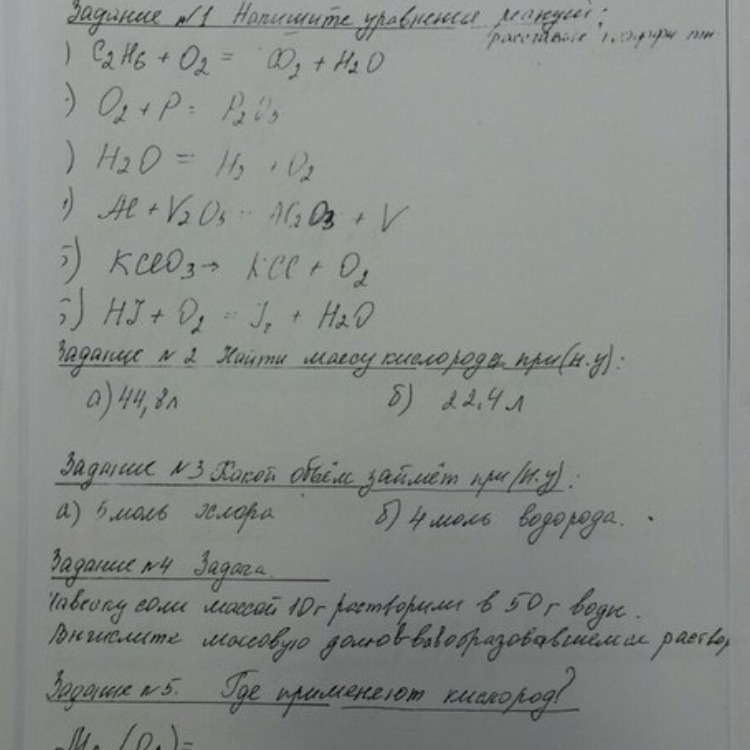 Задание №1 Напишите уравнения реакций:
расставьте коэффи
) C2H6 + O2 = CO2 + H2O
) O2 + P = P2O5
) H2O = H2 + O2
) Al + V2O5 = Al2O3 + V
5) KClO3 → KCl + O2
) HJ + O2 = J2 + H2O
Задание №2 Найти массу кислорода при(н.у):
а) 44,8л б) 22,4 л
Задание №3 Какой объём займёт при(н.у):
а) 5 моль хлора б) 4 моль водорода.
Задание №4 Задача.
Навеску соли массой 10г растворили в 50г воды.
Вычислите массовую долю образовавшемся раствор
Задание №5. Где применяют кислород?